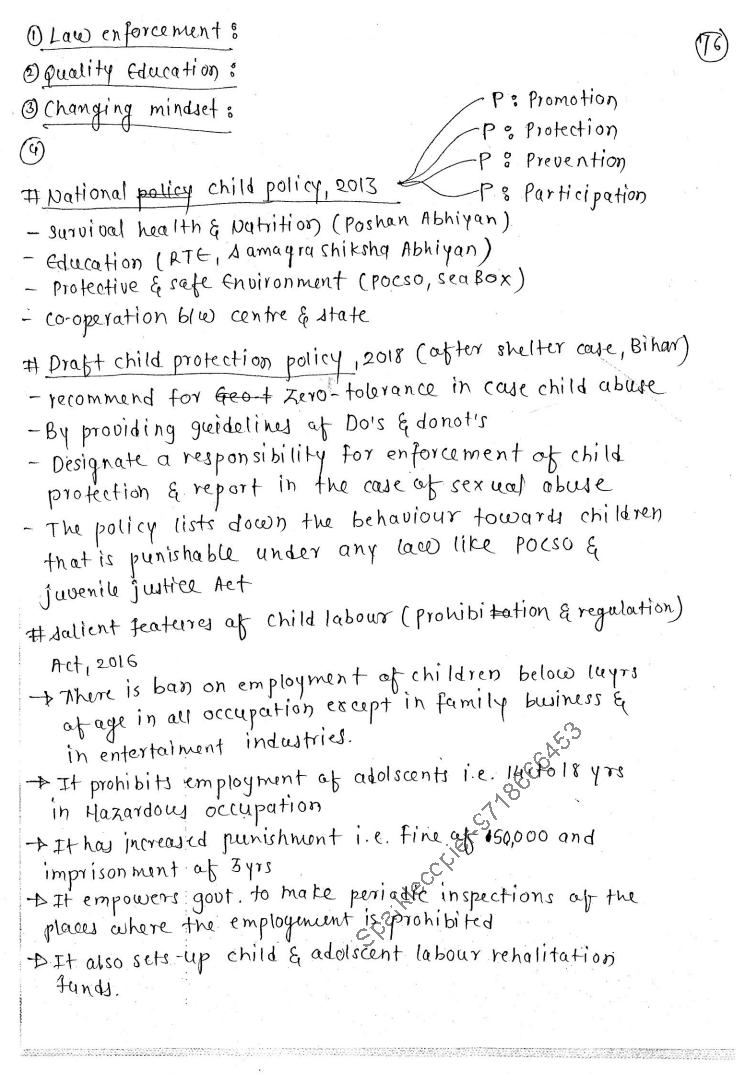 ① Law enforcement :
76
② Quality Education :
③ Changing mindset :
④
P : Promotion
P : Protection
P : Prevention
P : Participation
# National policy child policy, 2013
- Survival health & Nutrition (Poshan Abhiyan)
- Education (RTE, Samagra Shiksha Abhiyan)
- Protective & safe Environment (POCSO, SeaBox)
- co-operation b/w centre & state
# Draft child protection policy, 2018 (after shelter case, Bihar)
- recommend for Zero-tolerance in case child abuse
- By providing guidelines of Do's & donot's
- Designate a responsibility for enforcement of child
protection & report in the case of sexual abuse
- The policy lists down the behaviour towards children
that is punishable under any law like POCSO &
juvenile justice Act
# Salient features of Child labour (Prohibition & regulation)
Act, 2016
→ There is ban on employment of children below 14yrs
of age in all occupation except in family business &
in entertaiment industries.
→ It prohibits employment of adolscents i.e. 14 to 18 yrs
in Hazardous occupation
→ It has increased punishment i.e. fine of 50,000 and
imprisonment of 3yrs
→ It empowers govt. to make periodic inspections of the
places where the employement is prohibited
→ It also sets-up child & adolscent labour rehalitation
funds.